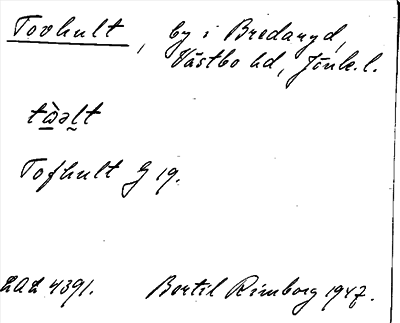 Tovhult, by i Bredaryd,
Västbo hd, Jönk. l.
tàəlt
Tofhult G 19.
LAL 4391. Bertil Rimborg 1947.